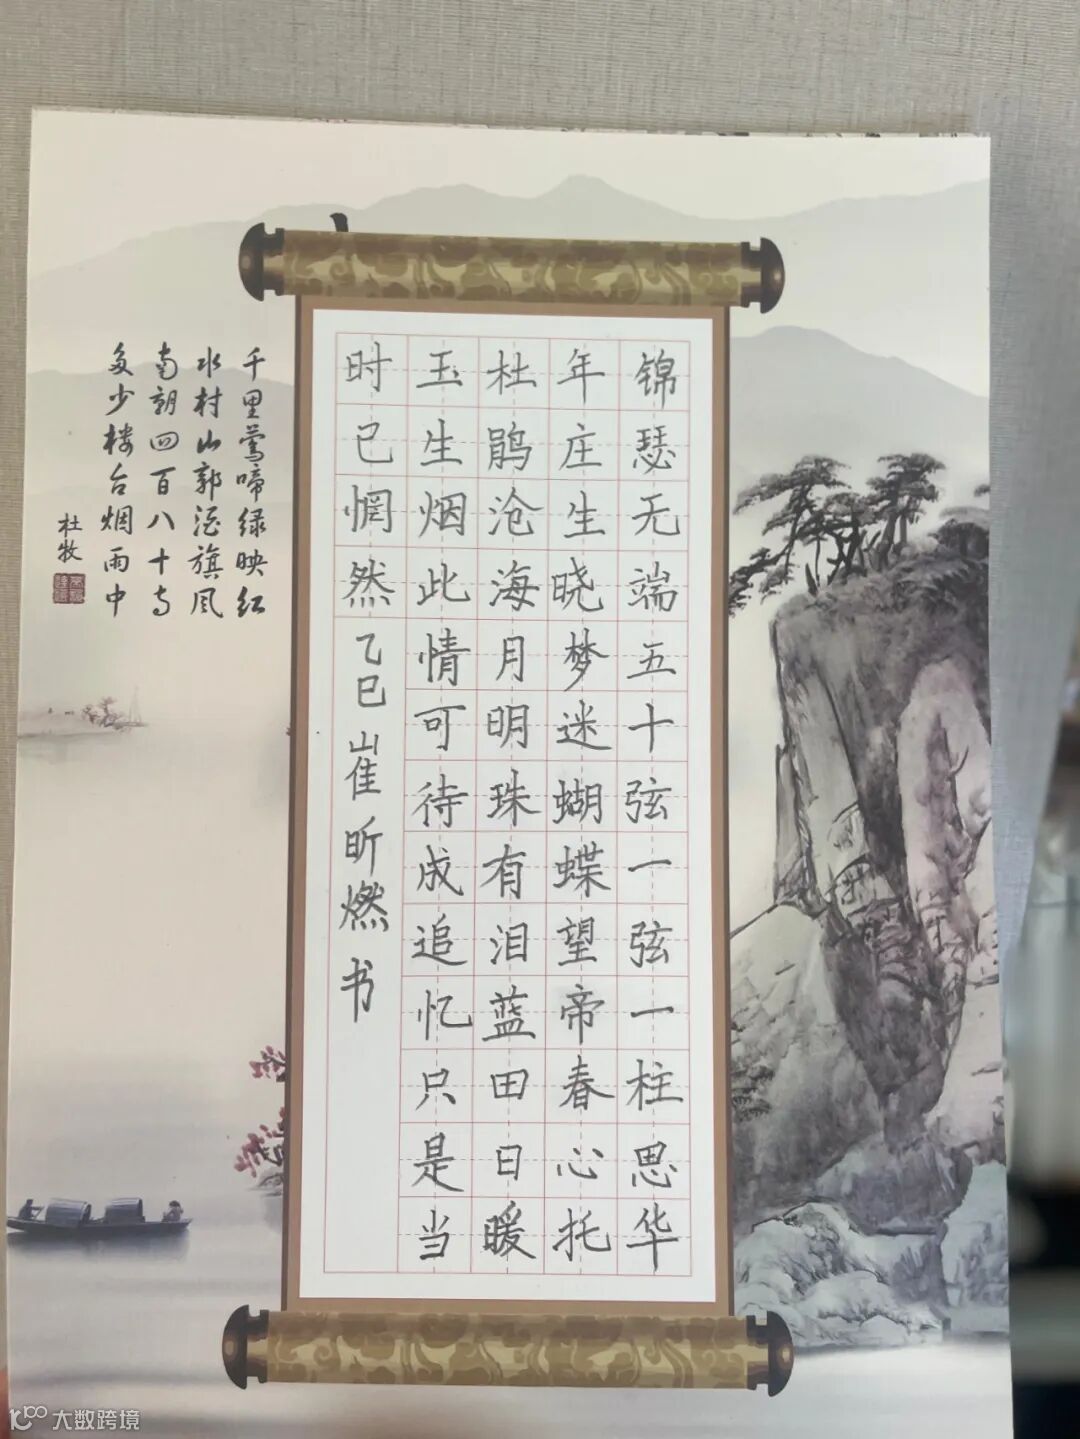 锦瑟无端五十弦一弦一柱思华
年庄生晓梦迷蝴蝶望帝春心托
杜鹃沧海月明珠有泪蓝田日暖
玉生烟此情可待成追忆只是当
时已惘然乙巳崔昕燃书
千里莺啼绿映红
水村山郭酒旗风
南朝四百八十寺
多少楼台烟雨中
杜牧
大数跨境